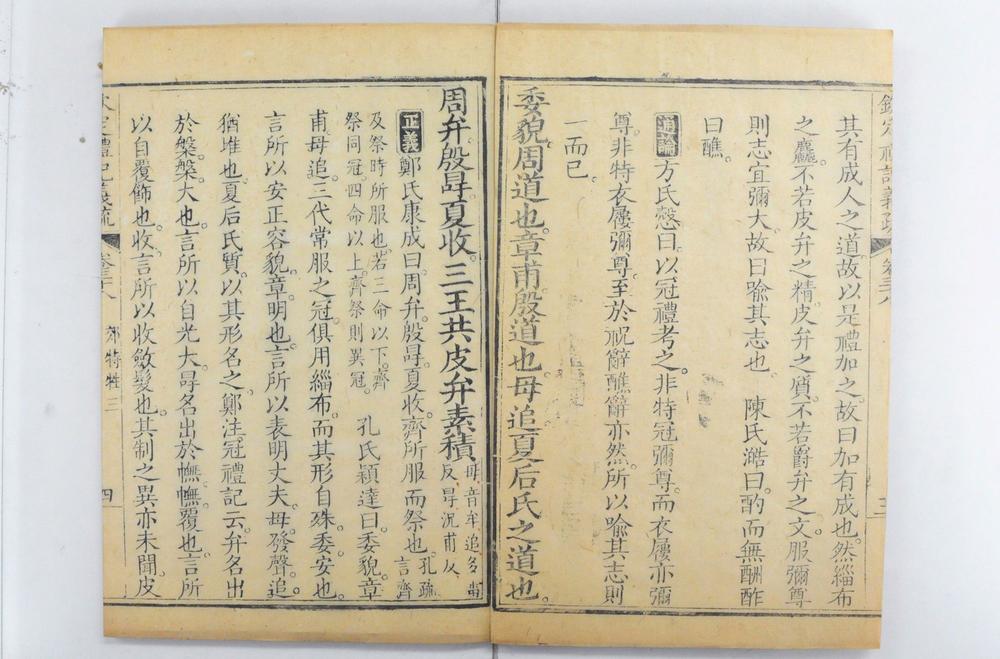 欽定禮記義疏 卷三十八 三
其有成人之道故以是禮加之故曰加有成也然緇布
之麤不若皮弁之精皮弁之質不若爵弁之文服彌尊
則志宜彌大故曰喻其志也 陳氏澔曰酌而無酬酢
曰醮
通論方氏慤曰以冠禮考之非特冠彌尊而衣屨亦彌
尊非特衣屨彌尊至於祝辭醮辭亦然所以喻其志則
一而已
委貌周道也章甫殷道也毋追夏后氏之道也
周弁殷冔夏收三王共皮弁素積毋音牟追多雷
反冔況甫反
正義鄭氏康成曰周弁殷冔夏收齊所服而祭也孔疏
言齊
及祭時所服也若三命以下齊
祭同冠四命以上齊祭則異冠 孔氏穎達曰委貌章
甫毋追三代常服之冠俱用緇布而其形自殊委安也
言所以安正容貌章明也言所以表明丈夫毋發聲追
猶堆也夏后氏質以其形名之鄭注冠禮記云弁名出
於槃槃大也言所以自光大冔名出於幠幠覆也言所
以自覆飾也收言所以收斂髮也其制之異亦未聞皮
欽定禮記義疏 卷三十八 郊特牲三 四